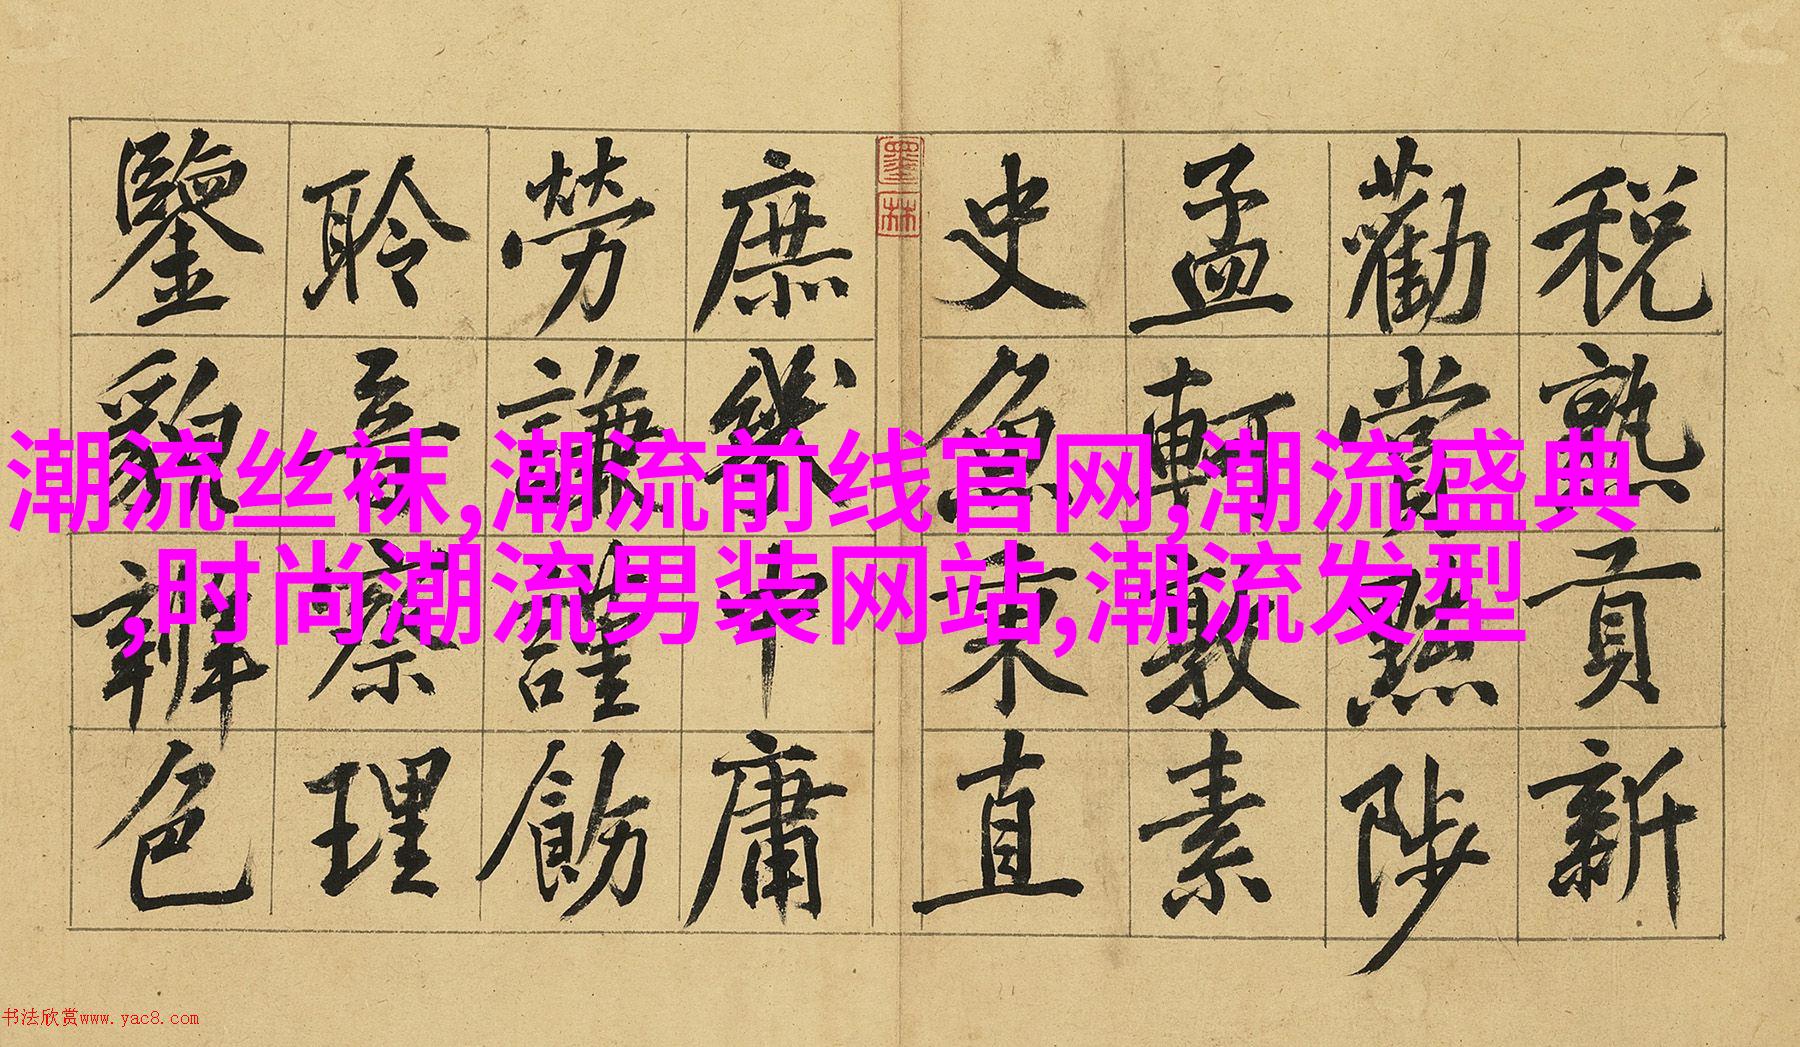 税熟貢新
勸賞黜陟
孟軻敦素
史魚秉直
墨林
庶幾中庸
勞謙謹飭
聆音察理
鑒貌辨色
潮流丝袜,潮流前线官网,潮流盛典
,时尚潮流男装网站,潮流发型
书法欣赏www.yac8.com